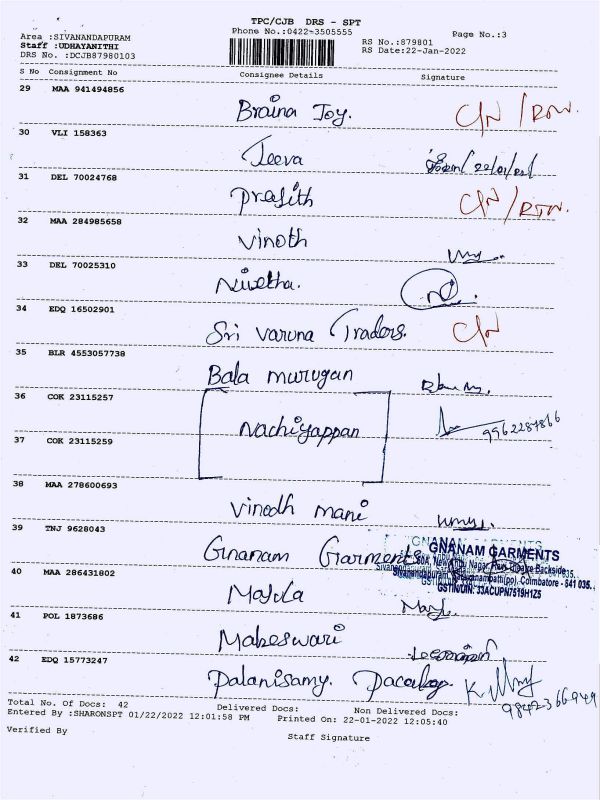 TPC/CJB DRS - SPT
Area :SIVANANDAPURAM Phone No.:0422-3505555 Page No.:3
Staff :UDHAYANITHI RS No.:879801
DRS No. :DCJB87980103 RS Date:22-Jan-2022
S No Consignment No Consignee Details Signature
29 MAA 941494856
Braina Joy. C/N / RTN.
30 VLI 158363
Jeeva
31 DEL 70024768
Prasith C/N / RTN.
32 MAA 284985658
Vinoth
33 DEL 70025310
Nivetha.
34 EDQ 16502901
Sri Varuna Traders. C/N
35 BLR 4553057738
Bala murugan
36 COK 23115257
Nachiyappan 9962287866
37 COK 23115259
38 MAA 278600693
Vinodh mani
39 TNJ 9628043
Gnanam Garments GNANAM GARMENTS
Coimbatore - 641 035.
GSTIN/UIN: 33ACUPN7519H1Z5
40 MAA 286431802
41 POL 1873686
Maheswari
42 EDQ 15773247
Palanisamy.
Total No. of Docs: 42 Delivered Docs: Non Delivered Docs:
Entered By :SHARONSPT 01/22/2022 12:01:58 PM Printed On: 22-01-2022 12:05:40
Verified By Staff Signature